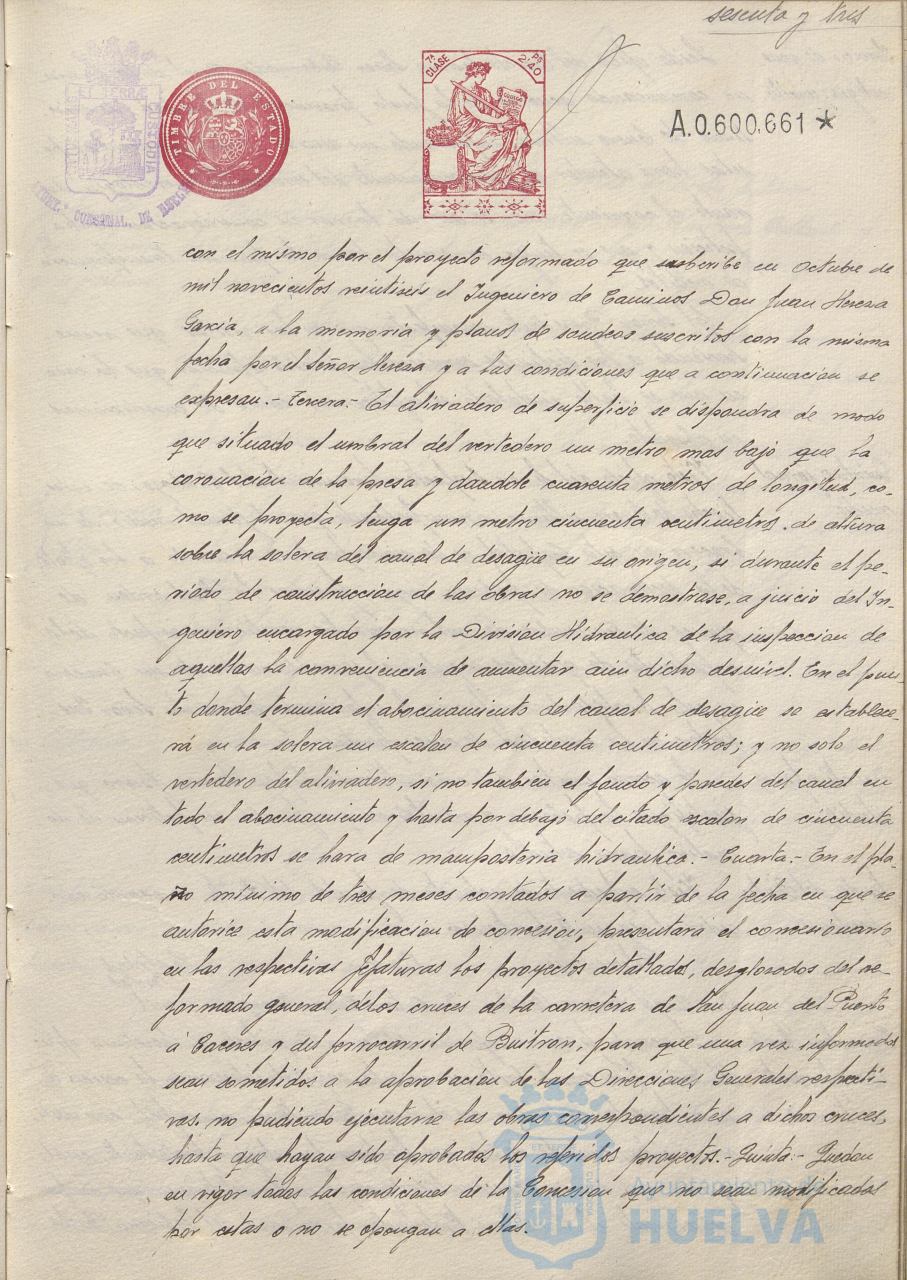 sesenta y tres
TIMBRE DEL ESTADO
7ª CLASE
PS 2'40
A.0.600.661 *
CUSTODIA
SUCURSAL. DE
con el mismo por el proyecto reformado que suscribe en Octubre de
mil novecientos veintiseis el Ingeniero de Caminos Don Juan Hereza
Garcia, a la memoria y planos de sondeos suscritos con la misma
fecha por el Señor Hereza y a las condiciones que a continuacion se
expresan.- Tercera.- El aliviadero de superficie se dispondra de modo
que situado el umbral del vertedero un metro mas bajo que la
coronacion de la presa y dandole cuarenta metros de longitud, co-
mo se proyecta, tenga un metro cincuenta centimetros de altura
sobre la solera del canal de desagüe en su origen, si durante el pe-
riodo de construccion de las obras no se demostrase, a juicio del In-
geniero encargado por la Division Hidraulica de la inspeccion de
aquellas la conveniencia de aumentar aun dicho desnivel. En el pun-
to donde termina el abocinamiento del canal de desagüe se establece-
rá en la solera un escalon de cincuenta centimetros; y no solo el
vertedero del aliviadero, si no tambien el fondo y paredes del canal en
todo el abocinamiento y hasta por debajo del citado escalon de cincuenta
centimetros se hara de mamposteria hidraulica.- Cuarta.- En el pla-
zo minimo de tres meses contados a partir de la fecha en que se
autorice esta modificacion de concesion, presentará el concesionario
en las respectivas Jefaturas los proyectos detallados, desglosados del re-
formado general, delos cruces de la carretera de San Juan del Puerto
á Caceres y del ferrocarril de Buitron, para que una vez informados
sean sometidos a la aprobacion de las Direcciones Generales respecti-
vas, no pudiendo ejecutarse las obras correspondientes a dichos cruces,
hasta que hayan sido aprobados los referidos proyectos.- Quinta.- Quedan
en vigor todas las condiciones de la Concesion que no sean modificadas
por estas o no se opongan a ellas.
Ayuntamiento de
HUELVA